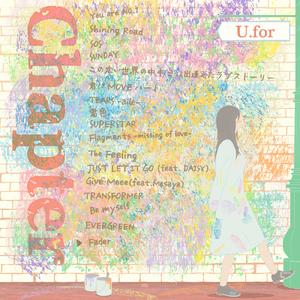 Chapter
U.for
You are NO.1
Shining Road
SOS
SUNDAY
この広い世界の中から出逢えたラブストーリー
君にMOVEハート
TEARS
雪色
SUPERSTAR
Fragments -missing of love-
The Feeling
JUST LET IT GO (feat. DAISY)
Give Meee(feat.Masaya)
TRANSFORMER
Be myself
EVERGREEN
Fader